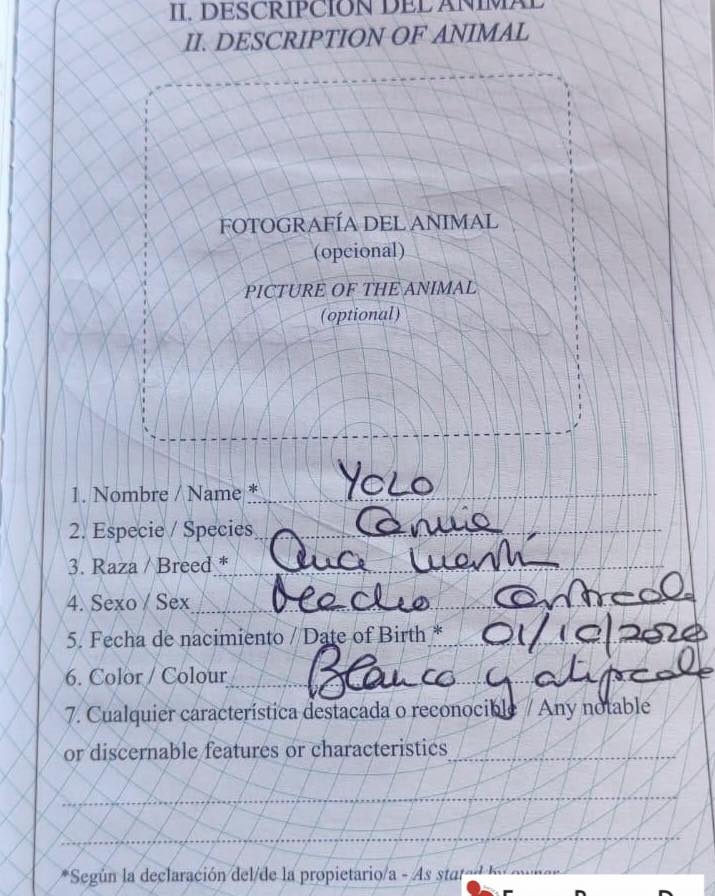 II. DESCRIPCIÓN DEL ANIMAL
II. DESCRIPTION OF ANIMAL
FOTOGRAFÍA DEL ANIMAL
(opcional)
PICTURE OF THE ANIMAL
(optional)
1. Nombre / Name * YOLO
2. Especie / Species
3. Raza / Breed *
4. Sexo / Sex Macho
5. Fecha de nacimiento / Date of Birth * 01/10/2020
6. Color / Colour Blanco y
7. Cualquier característica destacada o reconocible / Any notable
or discernable features or characteristics
*Según la declaración del/de la propietario/a - As stated by owner